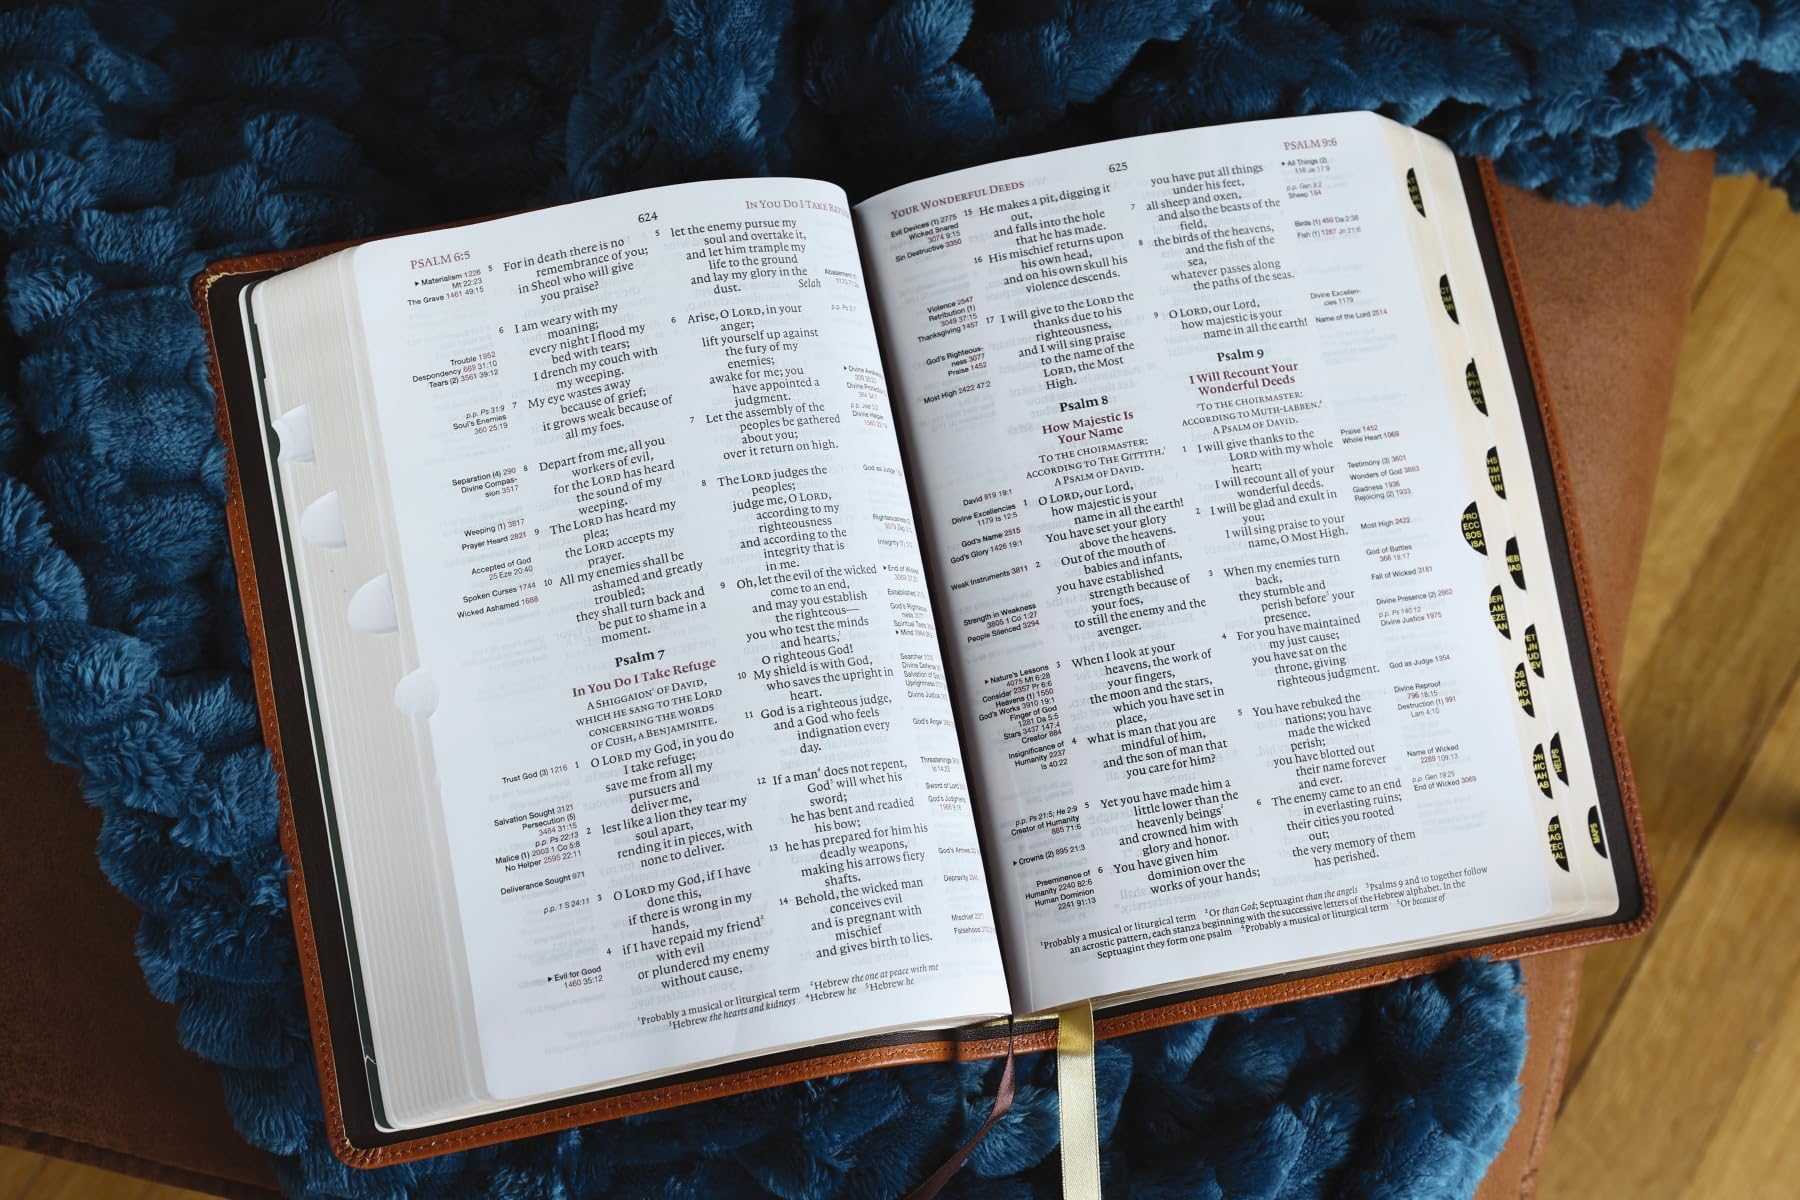 PSALM 6:5
624
IN YOU DO I TAKE
▸ Materialism 1226
Mt 22:23
The Grave 1461 49:15
Trouble 1952
Despondency 669 31:10
Tears (2) 3561 39:12
p.p. Ps 31:9
Soul's Enemies
360 25:19
Separation (4) 290
Divine Compas-
sion 3517
Weeping (1) 3817
Prayer Heard 2821
Accepted of God
25 Eze 20:40
Spoken Curses 1744
Wicked Ashamed 1688
Trust God (3) 1216
Salvation Sought 3121
Persecution (5)
3484 31:15
p.p. Ps 22:13
Malice (1) 2003 1 Co 5:8
No Helper 2595 22:11
Deliverance Sought 971
p.p. 1 S 24:11
▸ Evil for Good
1460 35:12
5 For in death there is no
remembrance of you;
in Sheol who will give
you praise?
6 I am weary with my
moaning;
every night I flood my
bed with tears;
I drench my couch with
my weeping.
7 My eye wastes away
because of grief;
it grows weak because of
all my foes.
8 Depart from me, all you
workers of evil,
for the LORD has heard
the sound of my
weeping.
9 The LORD has heard my
plea;
the LORD accepts my
prayer.
10 All my enemies shall be
ashamed and greatly
troubled;
they shall turn back and
be put to shame in a
moment.
Psalm 7
In You Do I Take Refuge
A SHIGGAION¹ OF DAVID,
WHICH HE SANG TO THE LORD
CONCERNING THE WORDS
OF CUSH, A BENJAMINITE.
1 O LORD my God, in you do
I take refuge;
save me from all my
pursuers and
deliver me,
2 lest like a lion they tear my
soul apart,
rending it in pieces, with
none to deliver.
3 O LORD my God, if I have
done this,
if there is wrong in my
hands,
4 if I have repaid my friend²
with evil
or plundered my enemy
without cause,
5 let the enemy pursue my
soul and overtake it,
and let him trample my
life to the ground
and lay my glory in the
dust. Selah
6 Arise, O LORD, in your
anger;
lift yourself up against
the fury of my
enemies;
awake for me; you
have appointed a
judgment.
7 Let the assembly of the
peoples be gathered
about you;
over it return on high.
8 The LORD judges the
peoples;
judge me, O LORD,
according to my
righteousness
and according to the
integrity that is
in me.
9 Oh, let the evil of the wicked
come to an end,
and may you establish
the righteous—
you who test the minds
and hearts,³
O righteous God!
10 My shield is with God,
who saves the upright in
heart.
11 God is a righteous judge,
and a God who feels
indignation every
day.
12 If a man⁴ does not repent,
God⁵ will whet his
sword;
he has bent and readied
his bow;
13 he has prepared for him his
deadly weapons,
making his arrows fiery
shafts.
14 Behold, the wicked man
conceives evil
and is pregnant with
mischief
and gives birth to lies.
p.p. Ps 3:7
God as Judge
Integrity (1)
▸ End of Wicked
Established
▸ Mind
Searcher
Divine Justice
God's Anger
Threatenings
Is 14:23
Sword of Lord
God's Arrows
Depravity
Mischief
Falsehood
¹Probably a musical or liturgical term ²Hebrew the one at peace with me
³Hebrew the hearts and kidneys ⁴Hebrew he ⁵Hebrew he
YOUR WONDERFUL DEEDS
625
PSALM 9:6
Evil Devices (1) 2775
Wicked Snared
3074 9:15
Sin Destructive 3350
Violence 2547
Retribution (1)
3049 37:15
Thanksgiving 1457
God's Righteous-
ness 3077
Praise 1452
Most High 2422 47:2
David 919 19:1
Divine Excellencies
1179 Is 12:5
God's Name 2515
God's Glory 1426 19:1
Weak Instruments 3811
Strength in Weakness
3805 1 Co 1:27
People Silenced 3294
▸ Nature's Lessons
4075 Mt 6:28
Consider 2357 Pr 6:6
Heavens (1) 1550
God's Works 3910 19:1
Finger of God
1281 Da 5:5
Stars 3437 147:4
Creator 884
Insignificance of
Humanity 2237
Is 40:22
p.p. Ps 21:5; He 2:9
Creator of Humanity
885 71:6
▸ Crowns (2) 895 21:3
Preeminence of
Humanity 2240 82:6
Human Dominion
2241 91:13
15 He makes a pit, digging it
out,
and falls into the hole
that he has made.
16 His mischief returns upon
his own head,
and on his own skull his
violence descends.
17 I will give to the LORD the
thanks due to his
righteousness,
and I will sing praise
to the name of the
LORD, the Most
High.
Psalm 8
How Majestic Is
Your Name
TO THE CHOIRMASTER:
ACCORDING TO THE GITTITH.¹
A PSALM OF DAVID.
1 O LORD, our Lord,
how majestic is your
name in all the earth!
You have set your glory
above the heavens.
2 Out of the mouth of
babies and infants,
you have established
strength because of
your foes,
to still the enemy and the
avenger.
3 When I look at your
heavens, the work of
your fingers,
the moon and the stars,
which you have set in
place,
4 what is man that you are
mindful of him,
and the son of man that
you care for him?
5 Yet you have made him a
little lower than the
heavenly beings²
and crowned him with
glory and honor.
6 You have given him
dominion over the
works of your hands;
you have put all things
under his feet,
7 all sheep and oxen,
and also the beasts of the
field,
8 the birds of the heavens,
and the fish of the
sea,
whatever passes along
the paths of the seas.
9 O LORD, our Lord,
how majestic is your
name in all the earth!
Psalm 9
I Will Recount Your
Wonderful Deeds
³TO THE CHOIRMASTER:
ACCORDING TO MUTH-LABBEN.⁴
A PSALM OF DAVID.
1 I will give thanks to the
LORD with my whole
heart;
I will recount all of your
wonderful deeds.
2 I will be glad and exult in
you;
I will sing praise to your
name, O Most High.
3 When my enemies turn
back,
they stumble and
perish before⁵ your
presence.
4 For you have maintained
my just cause;
you have sat on the
throne, giving
righteous judgment.
5 You have rebuked the
nations; you have
made the wicked
perish;
you have blotted out
their name forever
and ever.
6 The enemy came to an end
in everlasting ruins;
their cities you rooted
out;
the very memory of them
has perished.
▸ All Things (2)
118 Je 17:9
p.p. Gen 9:2
Sheep 184
Birds (1) 450 Da 2:38
Fish (1) 1287 Jn 21:6
Divine Excellen-
cies 1179
Name of the Lord 2514
Praise 1452
Whole Heart 1069
Testimony (3) 3601
Wonders of God 3883
Gladness 1936
Rejoicing (2) 1933
Most High 2422
God of Battles
366 18:17
Fall of Wicked 3181
Divine Presence (2) 2862
p.p. Ps 140:12
Divine Justice 1975
God as Judge 1354
Divine Reproof
796 18:15
Destruction (1) 991
Lam 4:10
Name of Wicked
2289 109:13
p.p. Gen 19:25
End of Wicked 3069
¹Probably a musical or liturgical term ²Or than God; Septuagint than the angels ³Psalms 9 and 10 together follow
an acrostic pattern, each stanza beginning with the successive letters of the Hebrew alphabet. In the
Septuagint they form one psalm ⁴Probably a musical or liturgical term ⁵Or because of
PRO
ECC
SOS
ISA
HELPS
MAPS